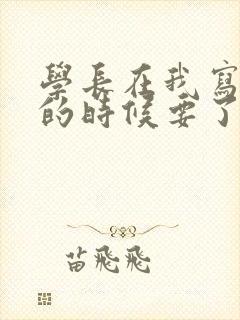 學長在我寫
的時候要了
苗飛飛